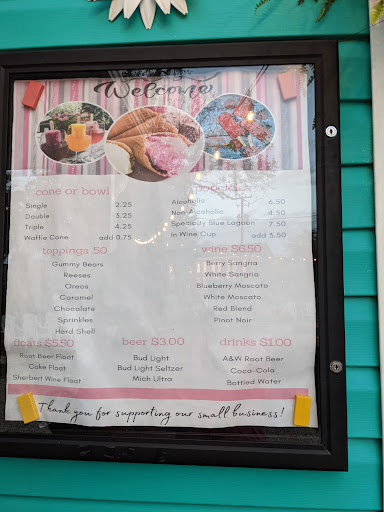 Welcome
cone or bowl
Single 2.25
Double 3.25
Triple 4.25
Waffle Cone add 0.75
popsicles
Alcoholic 6.50
Non-Alcoholic 4.50
Specialty Blue Lagoon 7.50
In Wine Cup add 3.50
toppings .50
Gummy Bears
Reeses
Oreos
Caramel
Chocolate
Sprinkles
Hard Shell
wine $6.50
Berry Sangria
White Sangria
Blueberry Moscato
White Moscato
Red Blend
Pinot Noir
floats $5.50
Root Beer Float
Coke Float
Sherbert Wine Float
beer $3.00
Bud Light
Bud Light Seltzer
Mich Ultra
drinks $1.00
A&W Root Beer
Coca-Cola
Bottled Water
Thank you for supporting our small business!